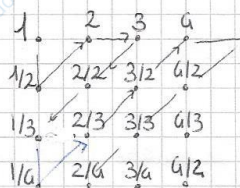 1 2 3 4
1/2 2/2 3/2 4/2
1/3 2/3 3/3 4/3
1/4 2/4 3/4 4/2